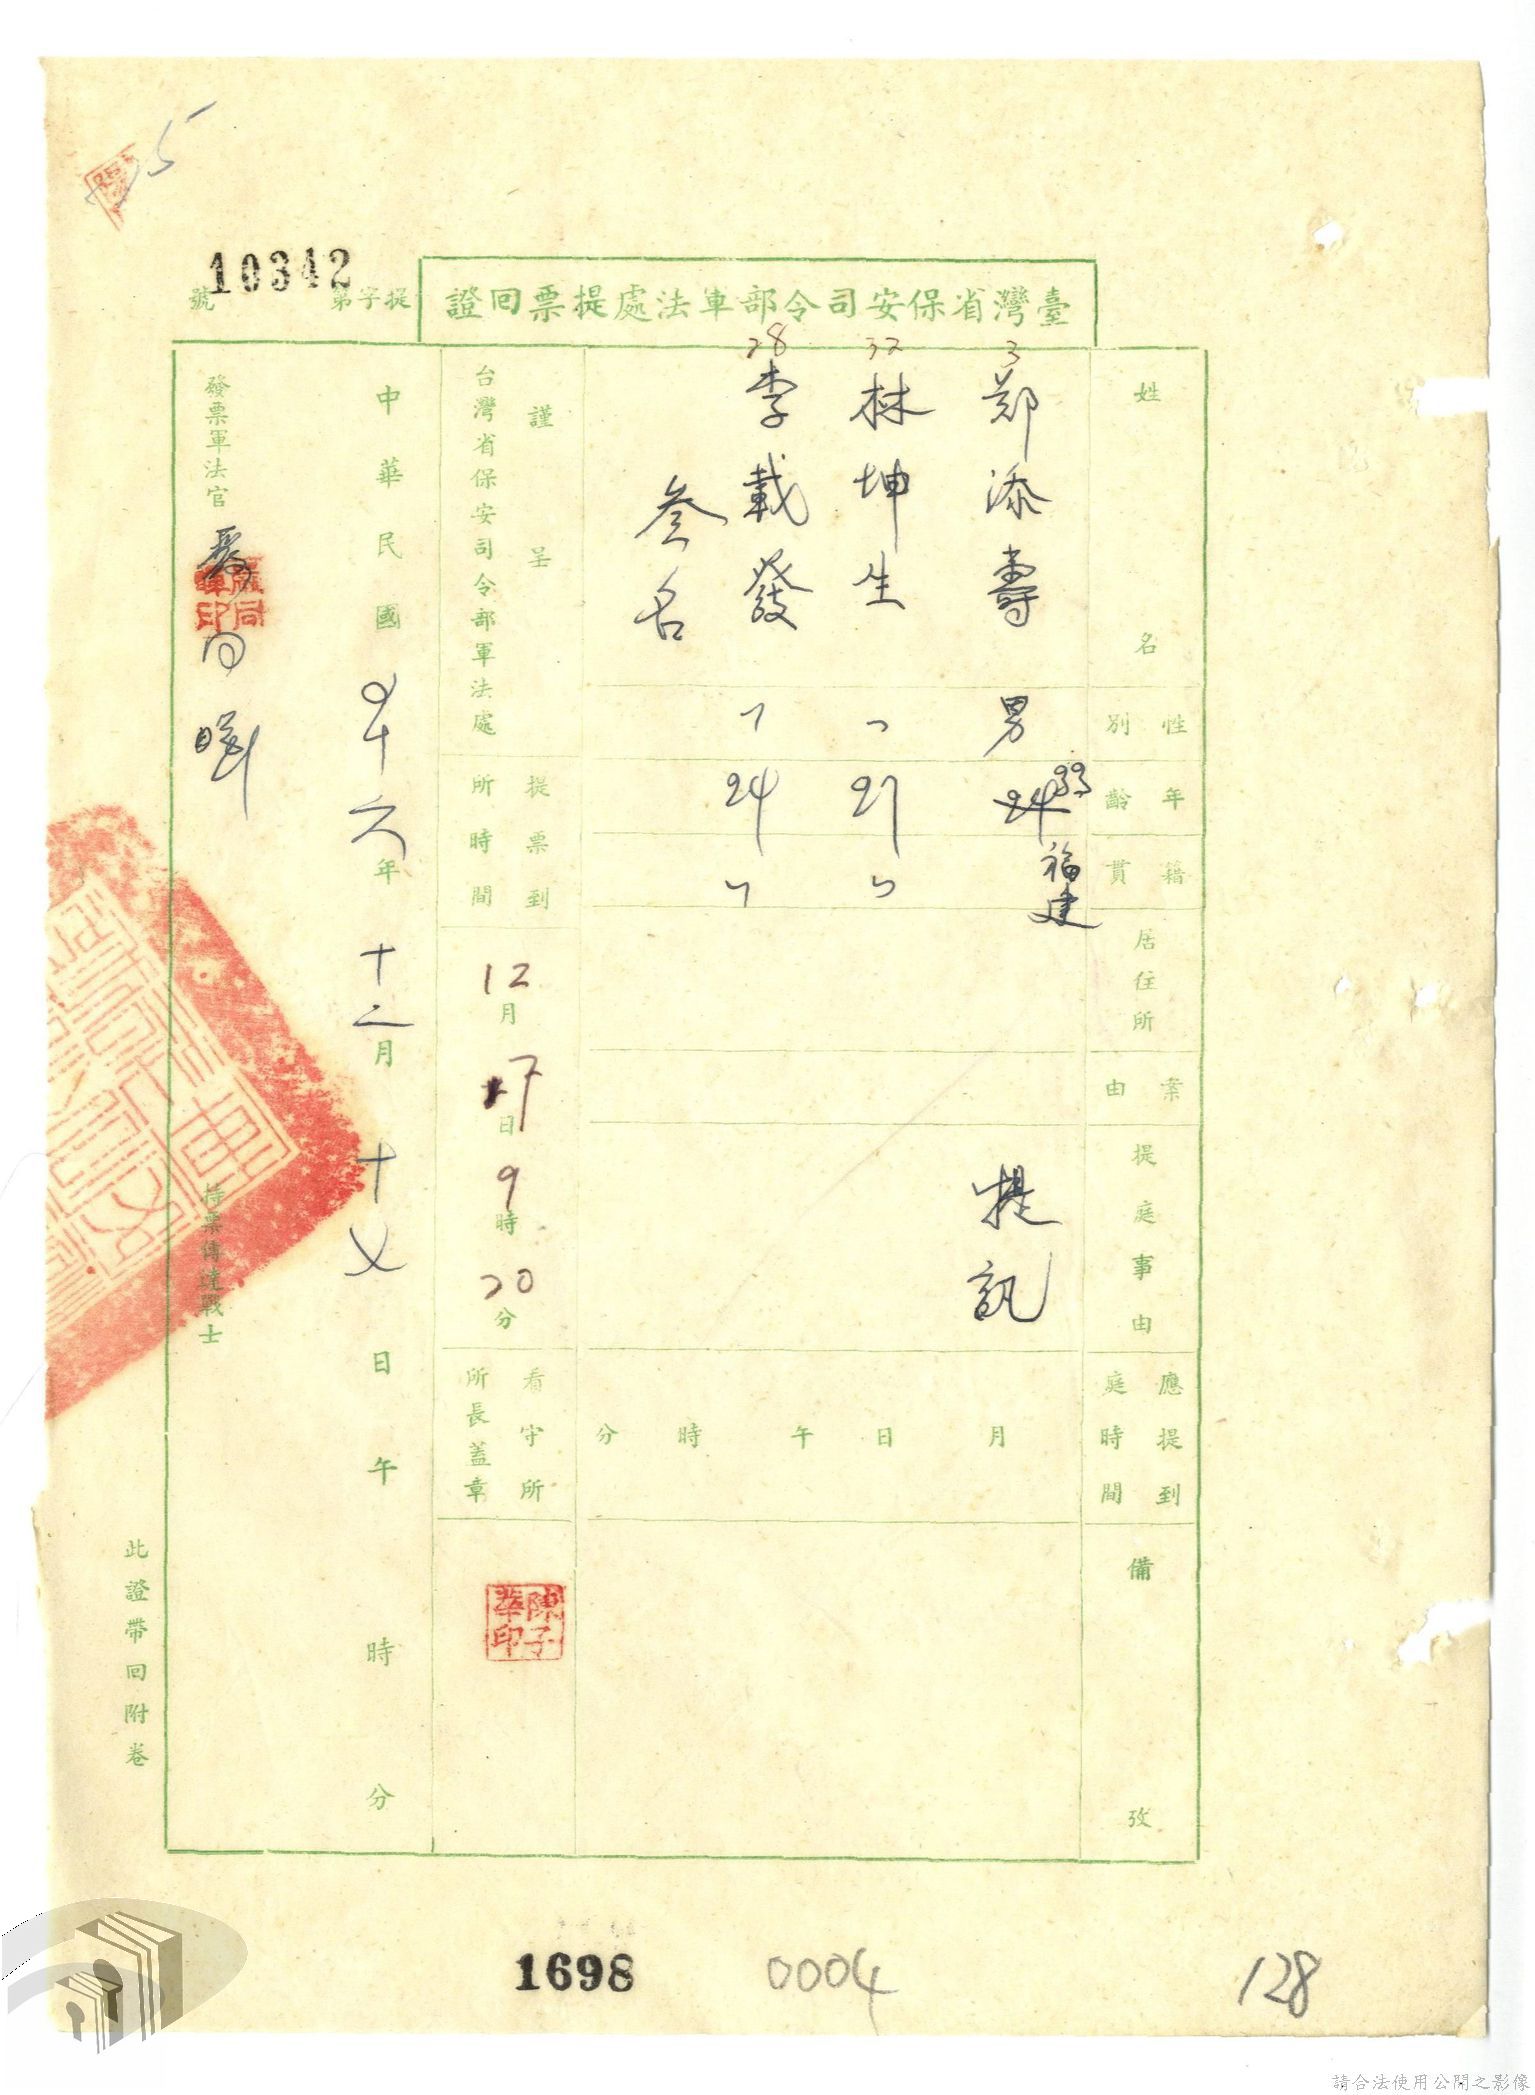 臺灣省保安司令部軍法處提票回證
提字第10342號
姓名
性別
年齡
籍貫
居住所
案由
提庭事由
應提到庭時間
備攷
3
鄭添壽
男
24
33
福建
提訊
32
林坤生
〃
27
〃
28
李載發
〃
24
〃
叁名
月日午時分
謹呈
台灣省保安司令部軍法處
提票到所時間
12月17日9時20分
看守所所長蓋章
陳子華印
中華民國四十六年十二月十七日午時分
發票軍法官
持票傳達戰士
此證帶回附卷
1698
0004
128
請合法使用公開之影像